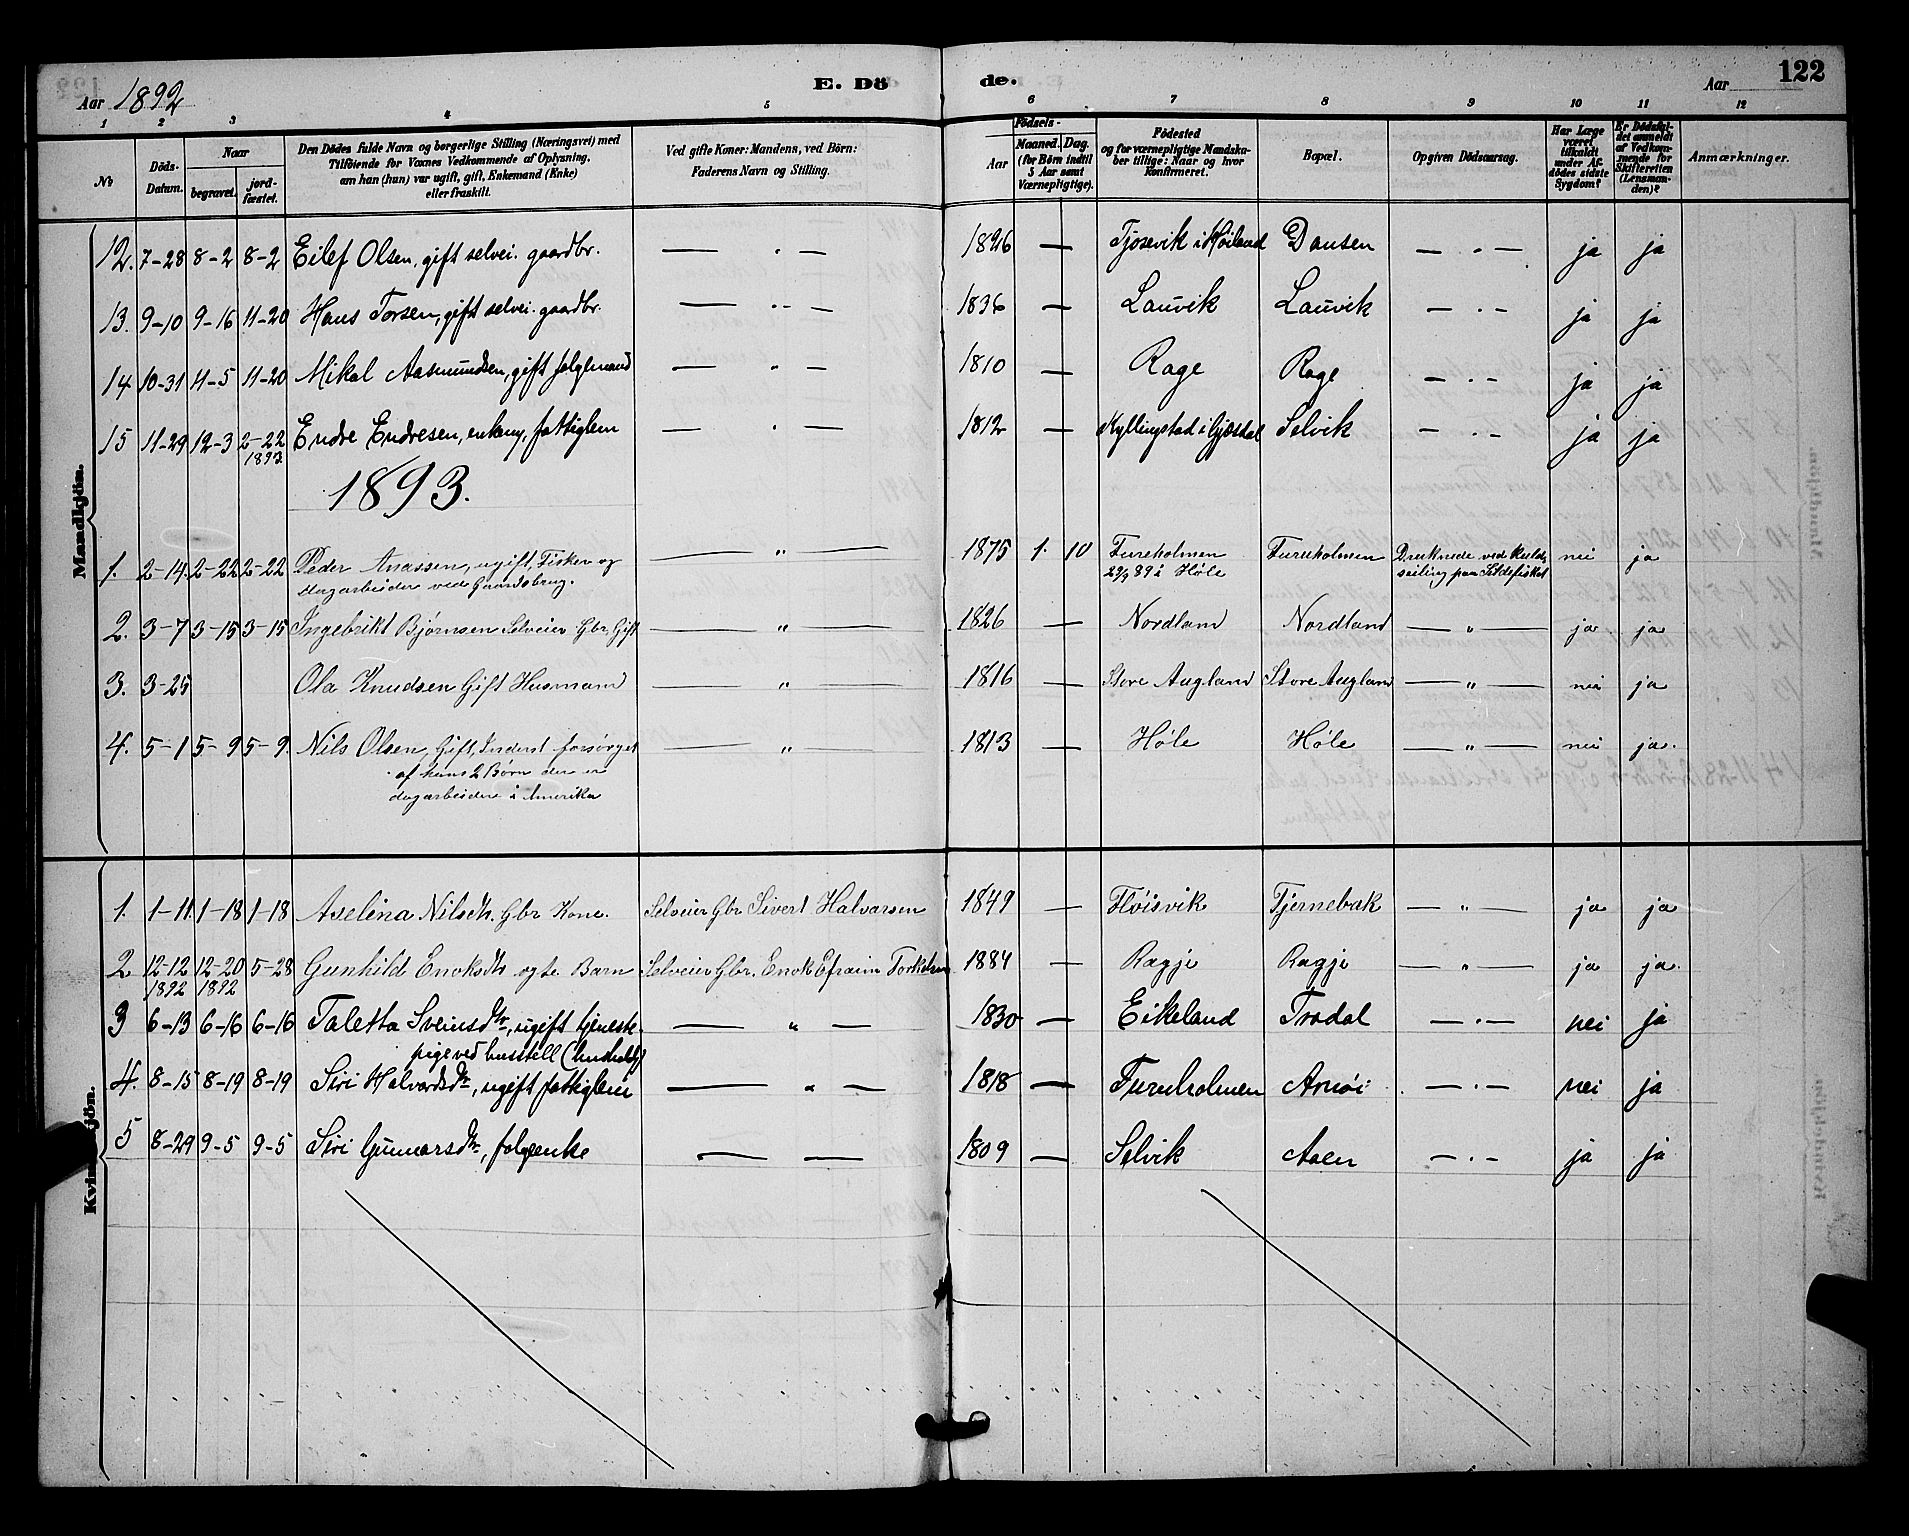 Aar 1892 E. Dö de. Aar 122
1 2 3 4 5 6 7 8 9 10 11 12
№ Döds-Datum. Naar begravet. jordfæstet. Den Dödes fulde Navn og borgerlige Stilling (Næringsvei) med Tilföiende for Voxnes Vedkommende af Oplysning, om han (hun) var ugift, gift, Enkemand (Enke) eller fraskilt. Ved gifte Koner: Mandens, ved Börn: Faderens Navn og Stilling. Födsels- Aar Maaned. Dag. (for Börn indtil 5 Aar samt Værnepligtige). Födested og for værnepligtige Mandskaber tillige: Naar og hvor konfirmeret. Bopæl. Opgiven Dödsaarsag. Har Læge været tilkaldt under Afdödes sidste Sygdom? Er Dödsfaldet anmeldt af Vedkommende for Skifteretten (Lensmanden)? Anmærkninger.
Mandkjön.
12. 7-28 8-2 8-2 Eilef Olsen, gift selvei. gaardbr. — . — 1826 — Tjosevik i Høiland Dausen — . — ja ja
13. 9-10 9-16 11-20 Hans Torsen, gift selvei. gaardbr. — .. — 1836 — Lauvik Lauvik — . — ja ja
14 10-31 11-5 11-20 Mikal Aasmundsen, gift folgemand — . — 1810 — Rage Rage — . — ja ja
15 11-29 12-3 2-22 1893 Endre Endresen, enkem, fattiglem — . — 1812 — Kyllingstad i Gjesdal Selvik — . — ja ja
1893.
1. 2-14. 2-22 2-22 Peder Anassen, ugift, Fisker og — " — 1875 1. 10 Fureholmen Fureholmen Druknede ved Kuld- nei ja
dagarbeider ved Gaardsbrug. 29/9 89 i Høle seiling paa Sildefisket
2. 3-7 3-15 3-15 Ingebrikt Bjørnsen Selveier Gbr, Gift — " — 1826 — Nordland Nordland — " — ja ja
3. 3-25 Ola Knudsen Gift Husmand — " — 1816 — Store Augland Store Augland — " — nei ja
4. 5-1 5-9 5-9. Nils Olsen, Gift, Inderst forsørget — " — 1813 — Høle Høle — " — nei ja.
af hans 2 Børn der er
dagarbeidere i Amerika
Kvindekjön.
1. 1-11. 1-18 1-18 Aselina Nilsdtr. Gbr Kone. Selveier Gbr Sivert Halvarsen 1849 — Fløisvik Tjernebak — " — ja ja
2 12-12 1892 12-20 1892 5-28 Gunhild Enoksdtr ægte Barn Selveier Gbr. Enok Efraim Torkelsen 1884 — Ragje Ragje — " — ja ja.
3 6-13 6-16 6-16 Taletta Sveinsdtr, ugift tjeneste- — " — 1830 — Eikeland Tradal — . — nei ja
pige ved husstell (hushold)
4. 8-15 8-19 8-19 Siri Halvardsdtr, ugift fattiglem — " — 1818 — Fureholmen Arnøi — . — nei ja
5 8-29 9-5 9-5 Siri Gunnarsdtr, folgeenke — — 1809 — Selvik Aaen — . — ja ja